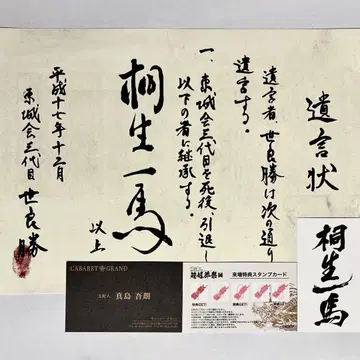 遺言状
遺言者、世良勝は次の通り
遺言する。
一、東城会三代目を死後、引退し
以下の者に継承する。
桐生一馬
以上
平成十七年十二月
東城会三代目 世良 勝
CABARET GRAND
支配人 真島 吾朗
来場特典スタンプカード
桐生一馬